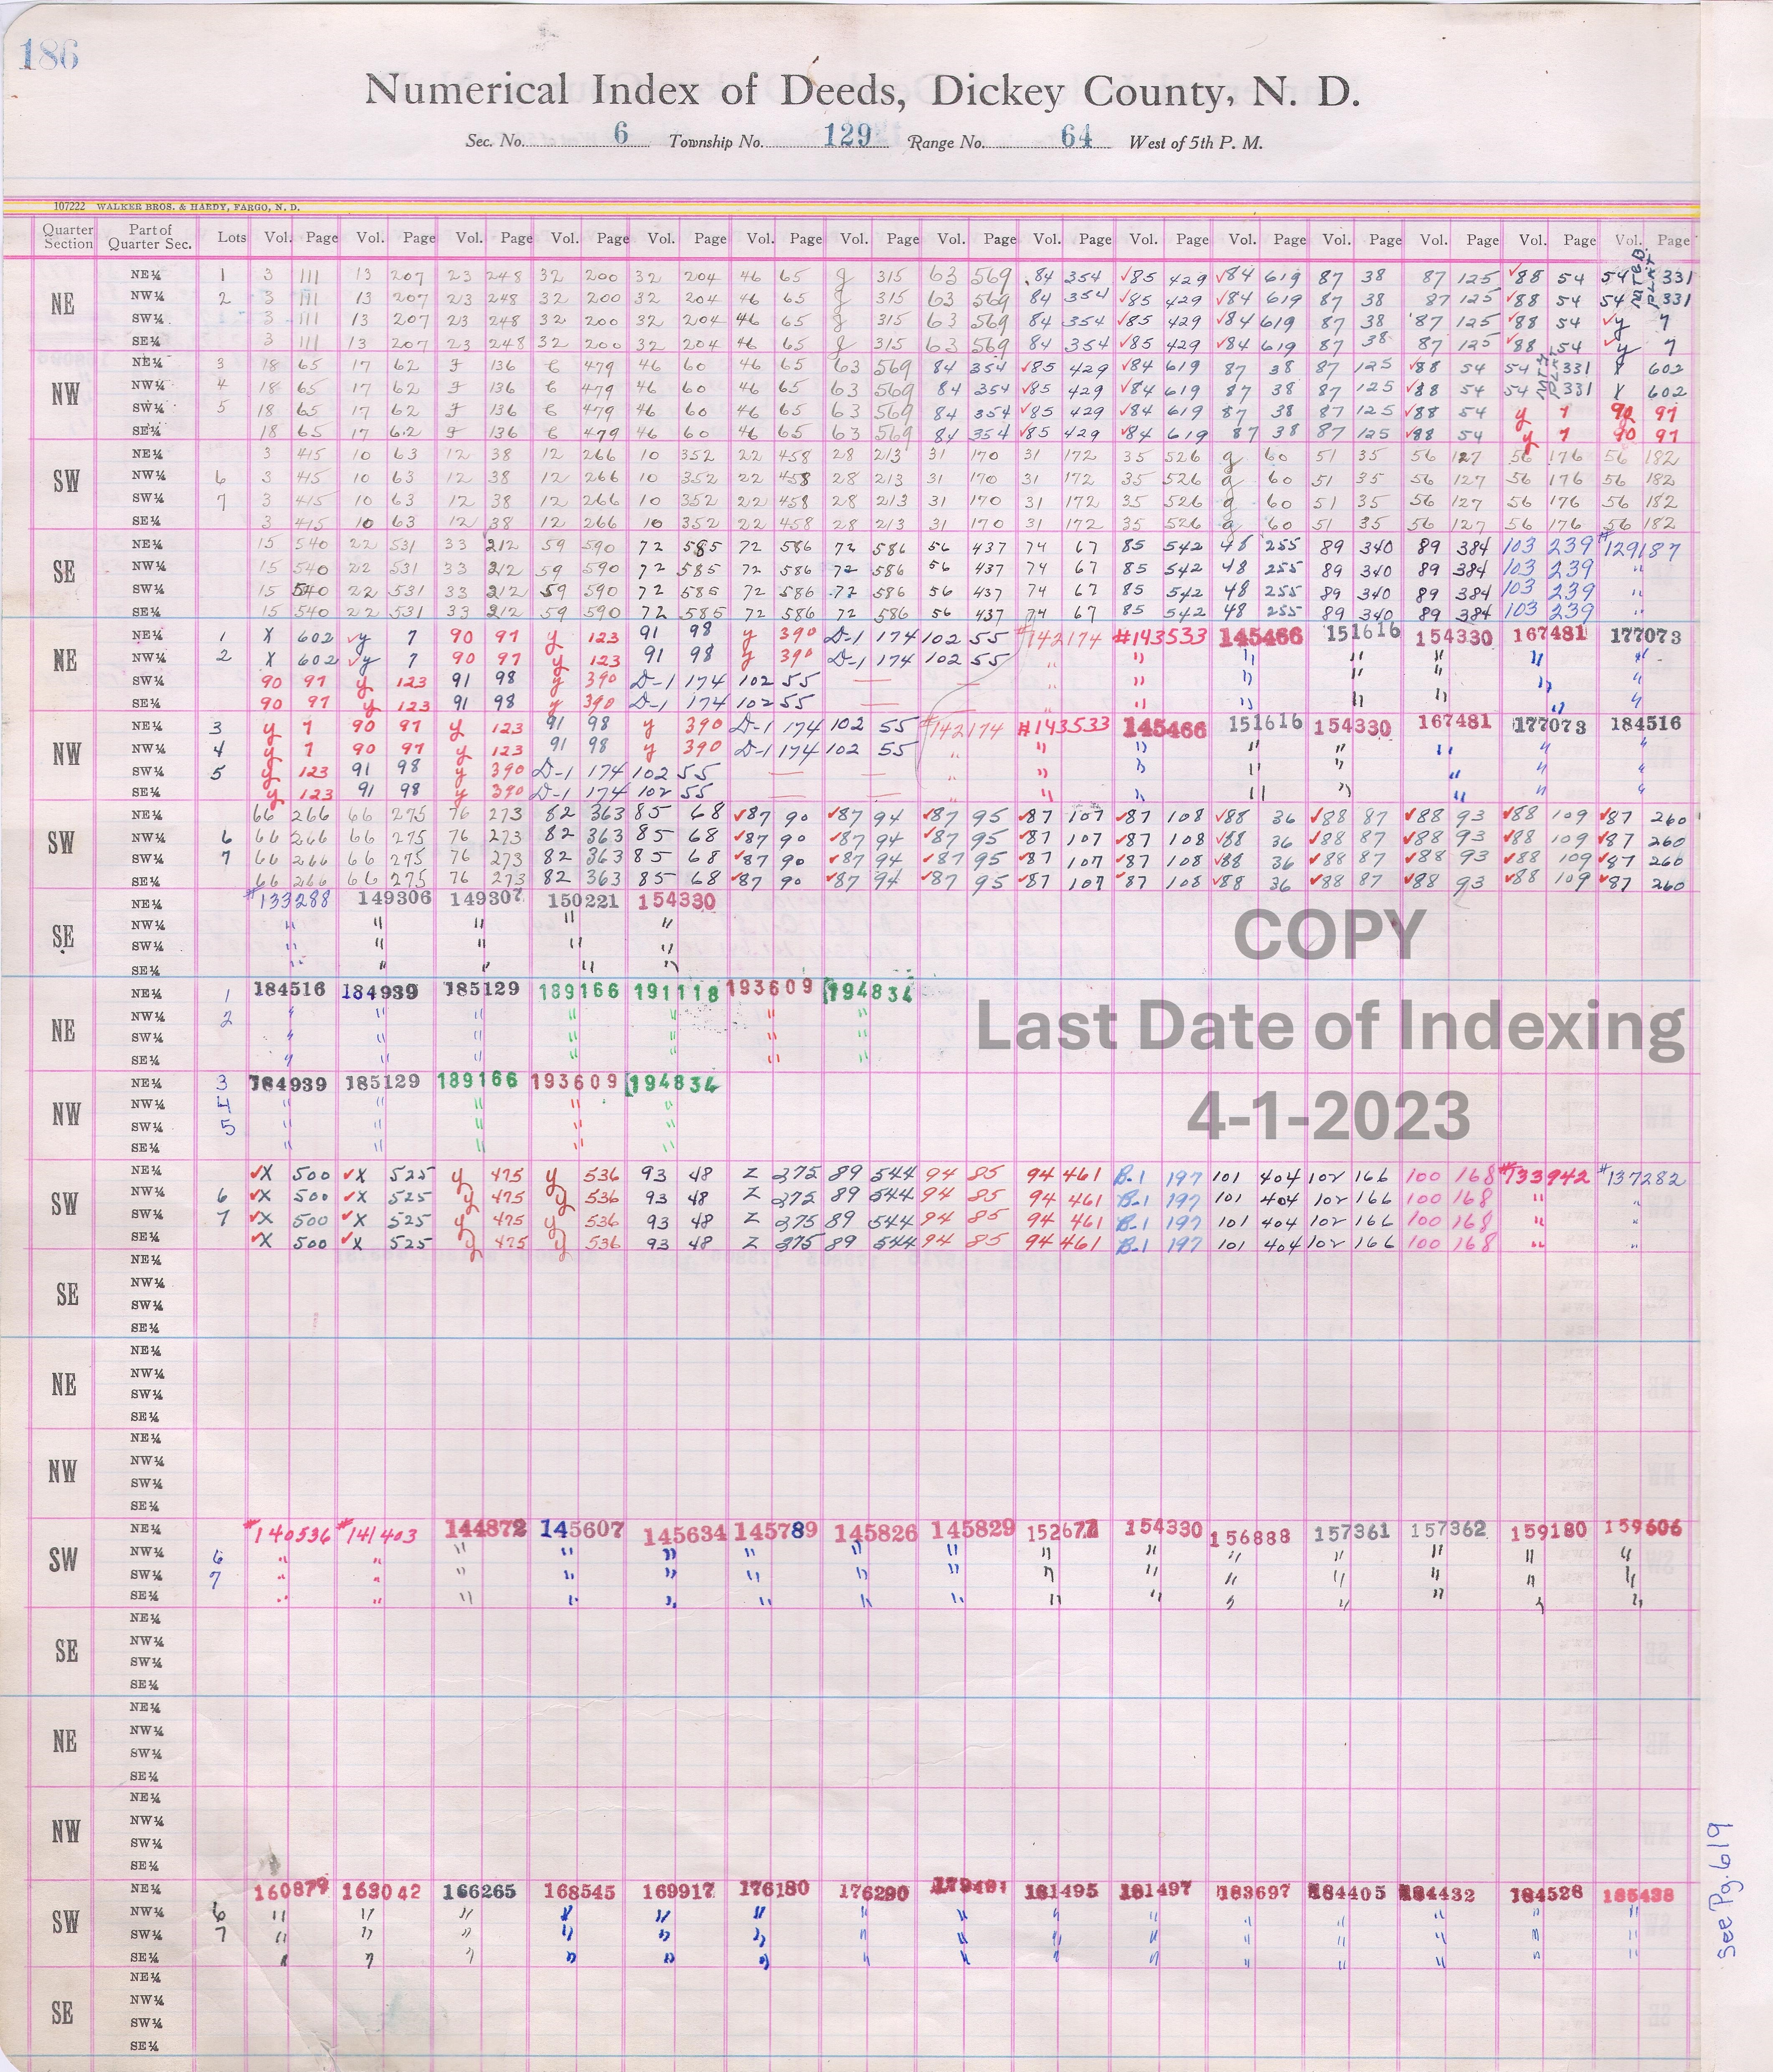 186
Numerical Index of Deeds, Dickey County, N. D.
Sec. No. 6 Township No. 129 Range No. 64 West of 5th P. M.
107222 WALKER BROS. & HARDY, FARGO, N. D.
Quarter Section Part of Quarter Sec. Lots Vol. Page Vol. Page Vol. Page Vol. Page Vol. Page Vol. Page Vol. Page Vol. Page Vol. Page Vol. Page Vol. Page Vol. Page Vol. Page Vol. Page Vol. Page
NE
NE¼ 1 3 111 13 207 23 248 32 200 32 204 46 65 g 315 63 569 84 354 ✓85 429 ✓84 619 87 38 87 125 ✓88 54 54 331
NW¼ 2 3 111 13 207 23 248 32 200 32 204 46 65 g 315 63 569 84 354 ✓85 429 ✓84 619 87 38 87 125 ✓88 54 54 331
SW¼ 3 111 13 207 23 248 32 200 32 204 46 65 g 315 63 569 84 354 ✓85 429 ✓84 619 87 38 87 125 ✓88 54 ✓y 7
SE¼ 3 111 13 207 23 248 32 200 32 204 46 65 g 315 63 569 84 354 ✓85 429 ✓84 619 87 38 87 125 ✓88 54 ✓y 7
NW
NE¼ 3 18 65 17 62 F 136 E 479 46 60 46 65 63 569 84 354 ✓85 429 ✓84 619 87 38 87 125 ✓88 54 54 331 X 602
NW¼ 4 18 65 17 62 F 136 E 479 46 60 46 65 63 569 84 354 ✓85 429 ✓84 619 87 38 87 125 ✓88 54 54 331 X 602
SW¼ 5 18 65 17 62 F 136 E 479 46 60 46 65 63 569 84 354 ✓85 429 ✓84 619 87 38 87 125 ✓88 54 y 7 90 97
SE¼ 18 65 17 62 F 136 E 479 46 60 46 65 63 569 84 354 ✓85 429 ✓84 619 87 38 87 125 ✓88 54 y 7 90 97
SW
NE¼ 3 415 10 63 12 38 12 266 10 352 22 458 28 213 31 170 31 172 35 526 g 60 51 35 56 127 56 176 56 182
NW¼ 6 3 415 10 63 12 38 12 266 10 352 22 458 28 213 31 170 31 172 35 526 g 60 51 35 56 127 56 176 56 182
SW¼ 7 3 415 10 63 12 38 12 266 10 352 22 458 28 213 31 170 31 172 35 526 g 60 51 35 56 127 56 176 56 182
SE¼ 3 415 10 63 12 38 12 266 10 352 22 458 28 213 31 170 31 172 35 526 g 60 51 35 56 127 56 176 56 182
SE
NE¼ 15 540 22 531 33 212 59 590 72 585 72 586 72 586 56 437 74 67 85 542 48 255 89 340 89 384 103 239 #129187
NW¼ 15 540 22 531 33 212 59 590 72 585 72 586 72 586 56 437 74 67 85 542 48 255 89 340 89 384 103 239 "
SW¼ 15 540 22 531 33 212 59 590 72 585 72 586 72 586 56 437 74 67 85 542 48 255 89 340 89 384 103 239 "
SE¼ 15 540 22 531 33 212 59 590 72 585 72 586 72 586 56 437 74 67 85 542 48 255 89 340 89 384 103 239 "
NE
NE¼ 1 X 602 ✓y 7 90 97 y 123 91 98 y 390 D-1 174 102 55 #142174 #143533 145466 151616 154330 167481 177073
NW¼ 2 X 602 ✓y 7 90 97 y 123 91 98 y 390 D-1 174 102 55 " " " " " " "
SW¼ 90 97 y 123 91 98 y 390 D-1 174 102 55 — — " " " " " " "
SE¼ 90 97 y 123 91 98 y 390 D-1 174 102 55 — — " " " " " " "
NW
NE¼ 3 y 7 90 97 y 123 91 98 y 390 D-1 174 102 55 #142174 #143533 145466 151616 154330 167481 177073 184516
NW¼ 4 y 7 90 97 y 123 91 98 y 390 D-1 174 102 55 " " " " " " " "
SW¼ 5 y 123 91 98 y 390 D-1 174 102 55 — — " " " " " " " "
SE¼ y 123 91 98 y 390 D-1 174 102 55 — — " " " " " " " "
SW
NE¼ 66 266 66 275 76 273 82 363 85 68 ✓87 90 ✓87 94 ✓87 95 ✓87 107 ✓87 108 ✓88 36 ✓88 87 ✓88 93 ✓88 109 ✓87 260
NW¼ 6 66 266 66 275 76 273 82 363 85 68 ✓87 90 ✓87 94 ✓87 95 ✓87 107 ✓87 108 ✓88 36 ✓88 87 ✓88 93 ✓88 109 ✓87 260
SW¼ 7 66 266 66 275 76 273 82 363 85 68 ✓87 90 ✓87 94 ✓87 95 ✓87 107 ✓87 108 ✓88 36 ✓88 87 ✓88 93 ✓88 109 ✓87 260
SE¼ 66 266 66 275 76 273 82 363 85 68 ✓87 90 ✓87 94 ✓87 95 ✓87 107 ✓87 108 ✓88 36 ✓88 87 ✓88 93 ✓88 109 ✓87 260
SE
NE¼ #133288 149306 149307 150221 154330
NW¼ " " " " "
SW¼ " " " " "
SE¼ " " " " "
COPY
NE
NE¼ 1 184516 184939 185129 189166 191118 193609 194834
NW¼ 2 " " " " " " "
SW¼ " " " " " " "
SE¼ " " " " " " "
Last Date of Indexing
NW
NE¼ 3 184939 185129 189166 193609 194834
NW¼ 4 " " " " "
SW¼ 5 " " " " "
SE¼ " " " " "
4-1-2023
SW
NE¼ ✓X 500 ✓X 525 y 475 y 536 93 48 Z 275 89 544 94 85 94 461 B-1 197 101 404 102 166 100 168 #133942 #137282
NW¼ 6 ✓X 500 ✓X 525 y 475 y 536 93 48 Z 275 89 544 94 85 94 461 B-1 197 101 404 102 166 100 168 " "
SW¼ 7 ✓X 500 ✓X 525 y 475 y 536 93 48 Z 275 89 544 94 85 94 461 B-1 197 101 404 102 166 100 168 " "
SE¼ ✓X 500 ✓X 525 y 475 y 536 93 48 Z 275 89 544 94 85 94 461 B-1 197 101 404 102 166 100 168 " "
SE
NE¼
NW¼
SW¼
SE¼
NE
NE¼
NW¼
SW¼
SE¼
NW
NE¼
NW¼
SW¼
SE¼
SW
NE¼ #140536 #141403 144872 145607 145634 145789 145826 145829 152677 154330 156888 157361 157362 159180 159606
NW¼ 6 " " " " " " " " " " " " " " "
SW¼ 7 " " " " " " " " " " " " " " "
SE¼ " " " " " " " " " " " " " " "
SE
NE¼
NW¼
SW¼
SE¼
NE
NE¼
NW¼
SW¼
SE¼
NW
NE¼
NW¼
SW¼
SE¼
SW
NE¼ 160879 163042 166265 168545 169917 176180 176290 181495 181497 183697 184405 184432 184528 185438
NW¼ 6 " " " " " " " " " " " " " " "
SW¼ 7 " " " " " " " " " " " " " " "
SE¼ " " " " " " " " " " " " " " "
SE
NE¼
NW¼
SW¼
SE¼
See Pg. 619